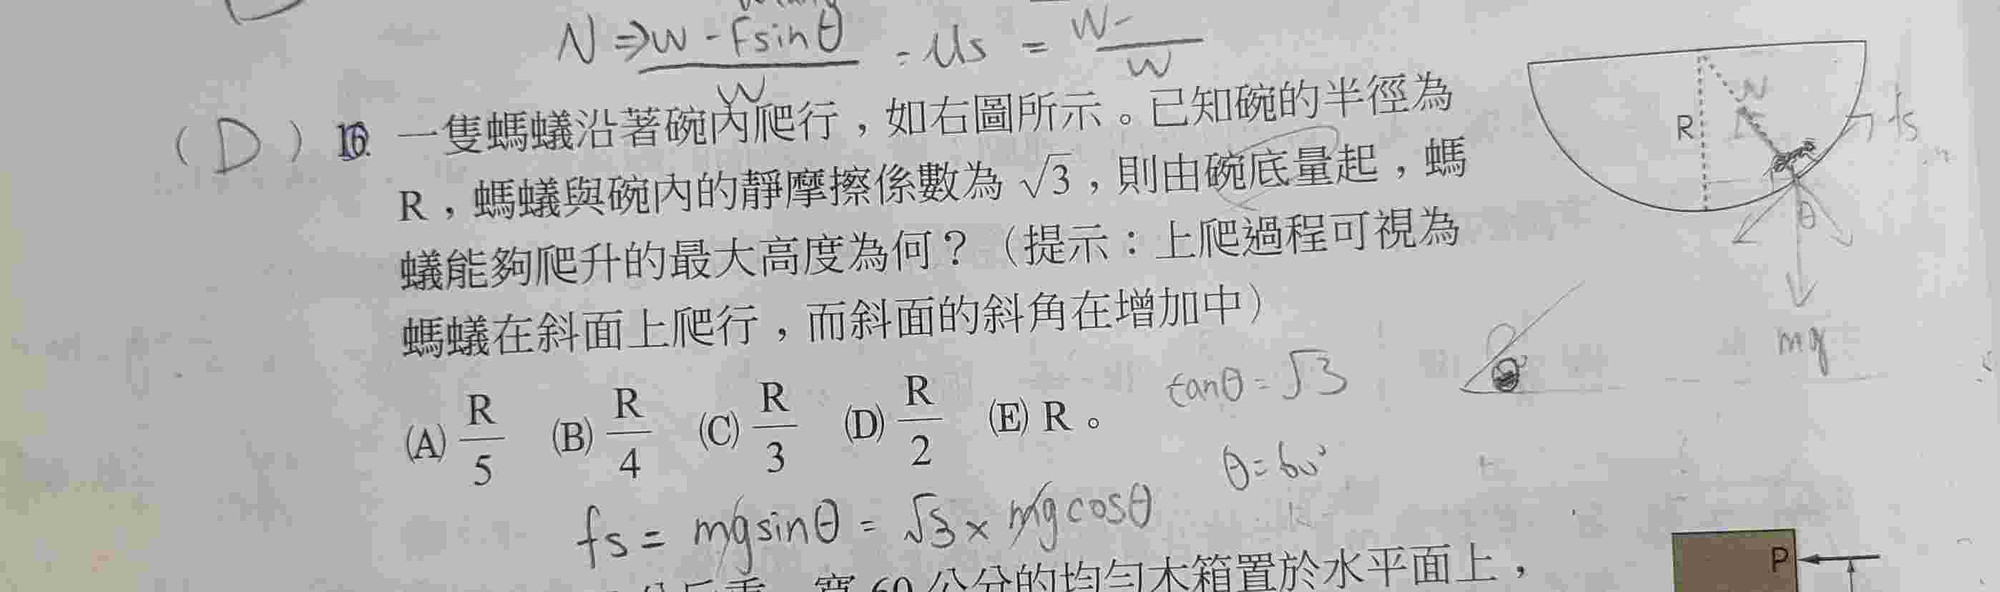 N⇒W-Fsinθ/W = Us = W-/W
(D) 16. 一隻螞蟻沿著碗內爬行，如右圖所示。已知碗的半徑為
R，螞蟻與碗內的靜摩擦係數為√3，則由碗底量起，螞
蟻能夠爬升的最大高度為何？（提示：上爬過程可視為
螞蟻在斜面上爬行，而斜面的斜角在增加中）
(A) R/5 (B) R/4 (C) R/3 (D) R/2 (E) R。
tanθ=√3
θ=60°
fs = mgsinθ = √3 × mgcosθ
寬 60 公分的均勻木箱置於水平面上，
R
N
fs
θ
mg
P